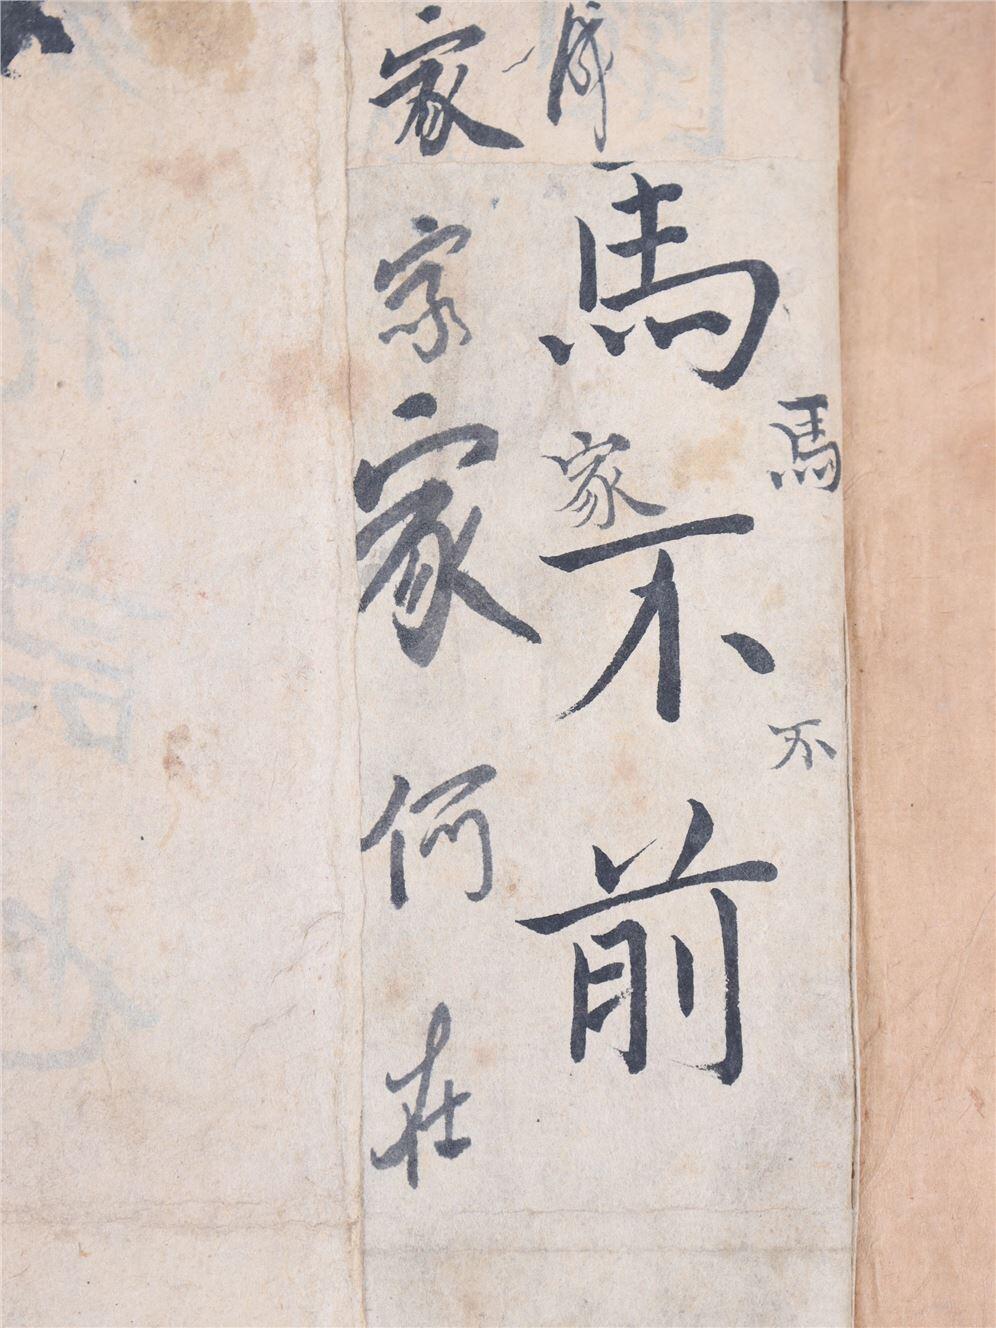 馬
不
馬不前
家
家家家何在